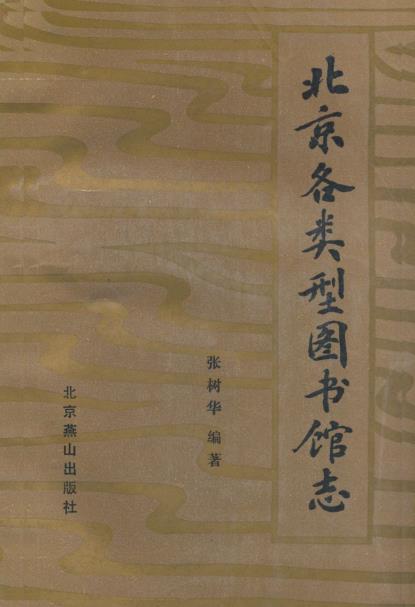 北京各类型图书馆志
张树华 编著
北京燕山出版社